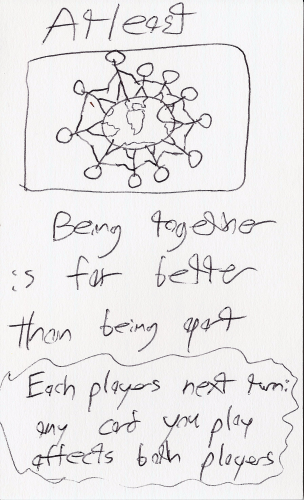 At least
Being together
is far better
than being apart
Each players next turn:
any card you play
affects both players